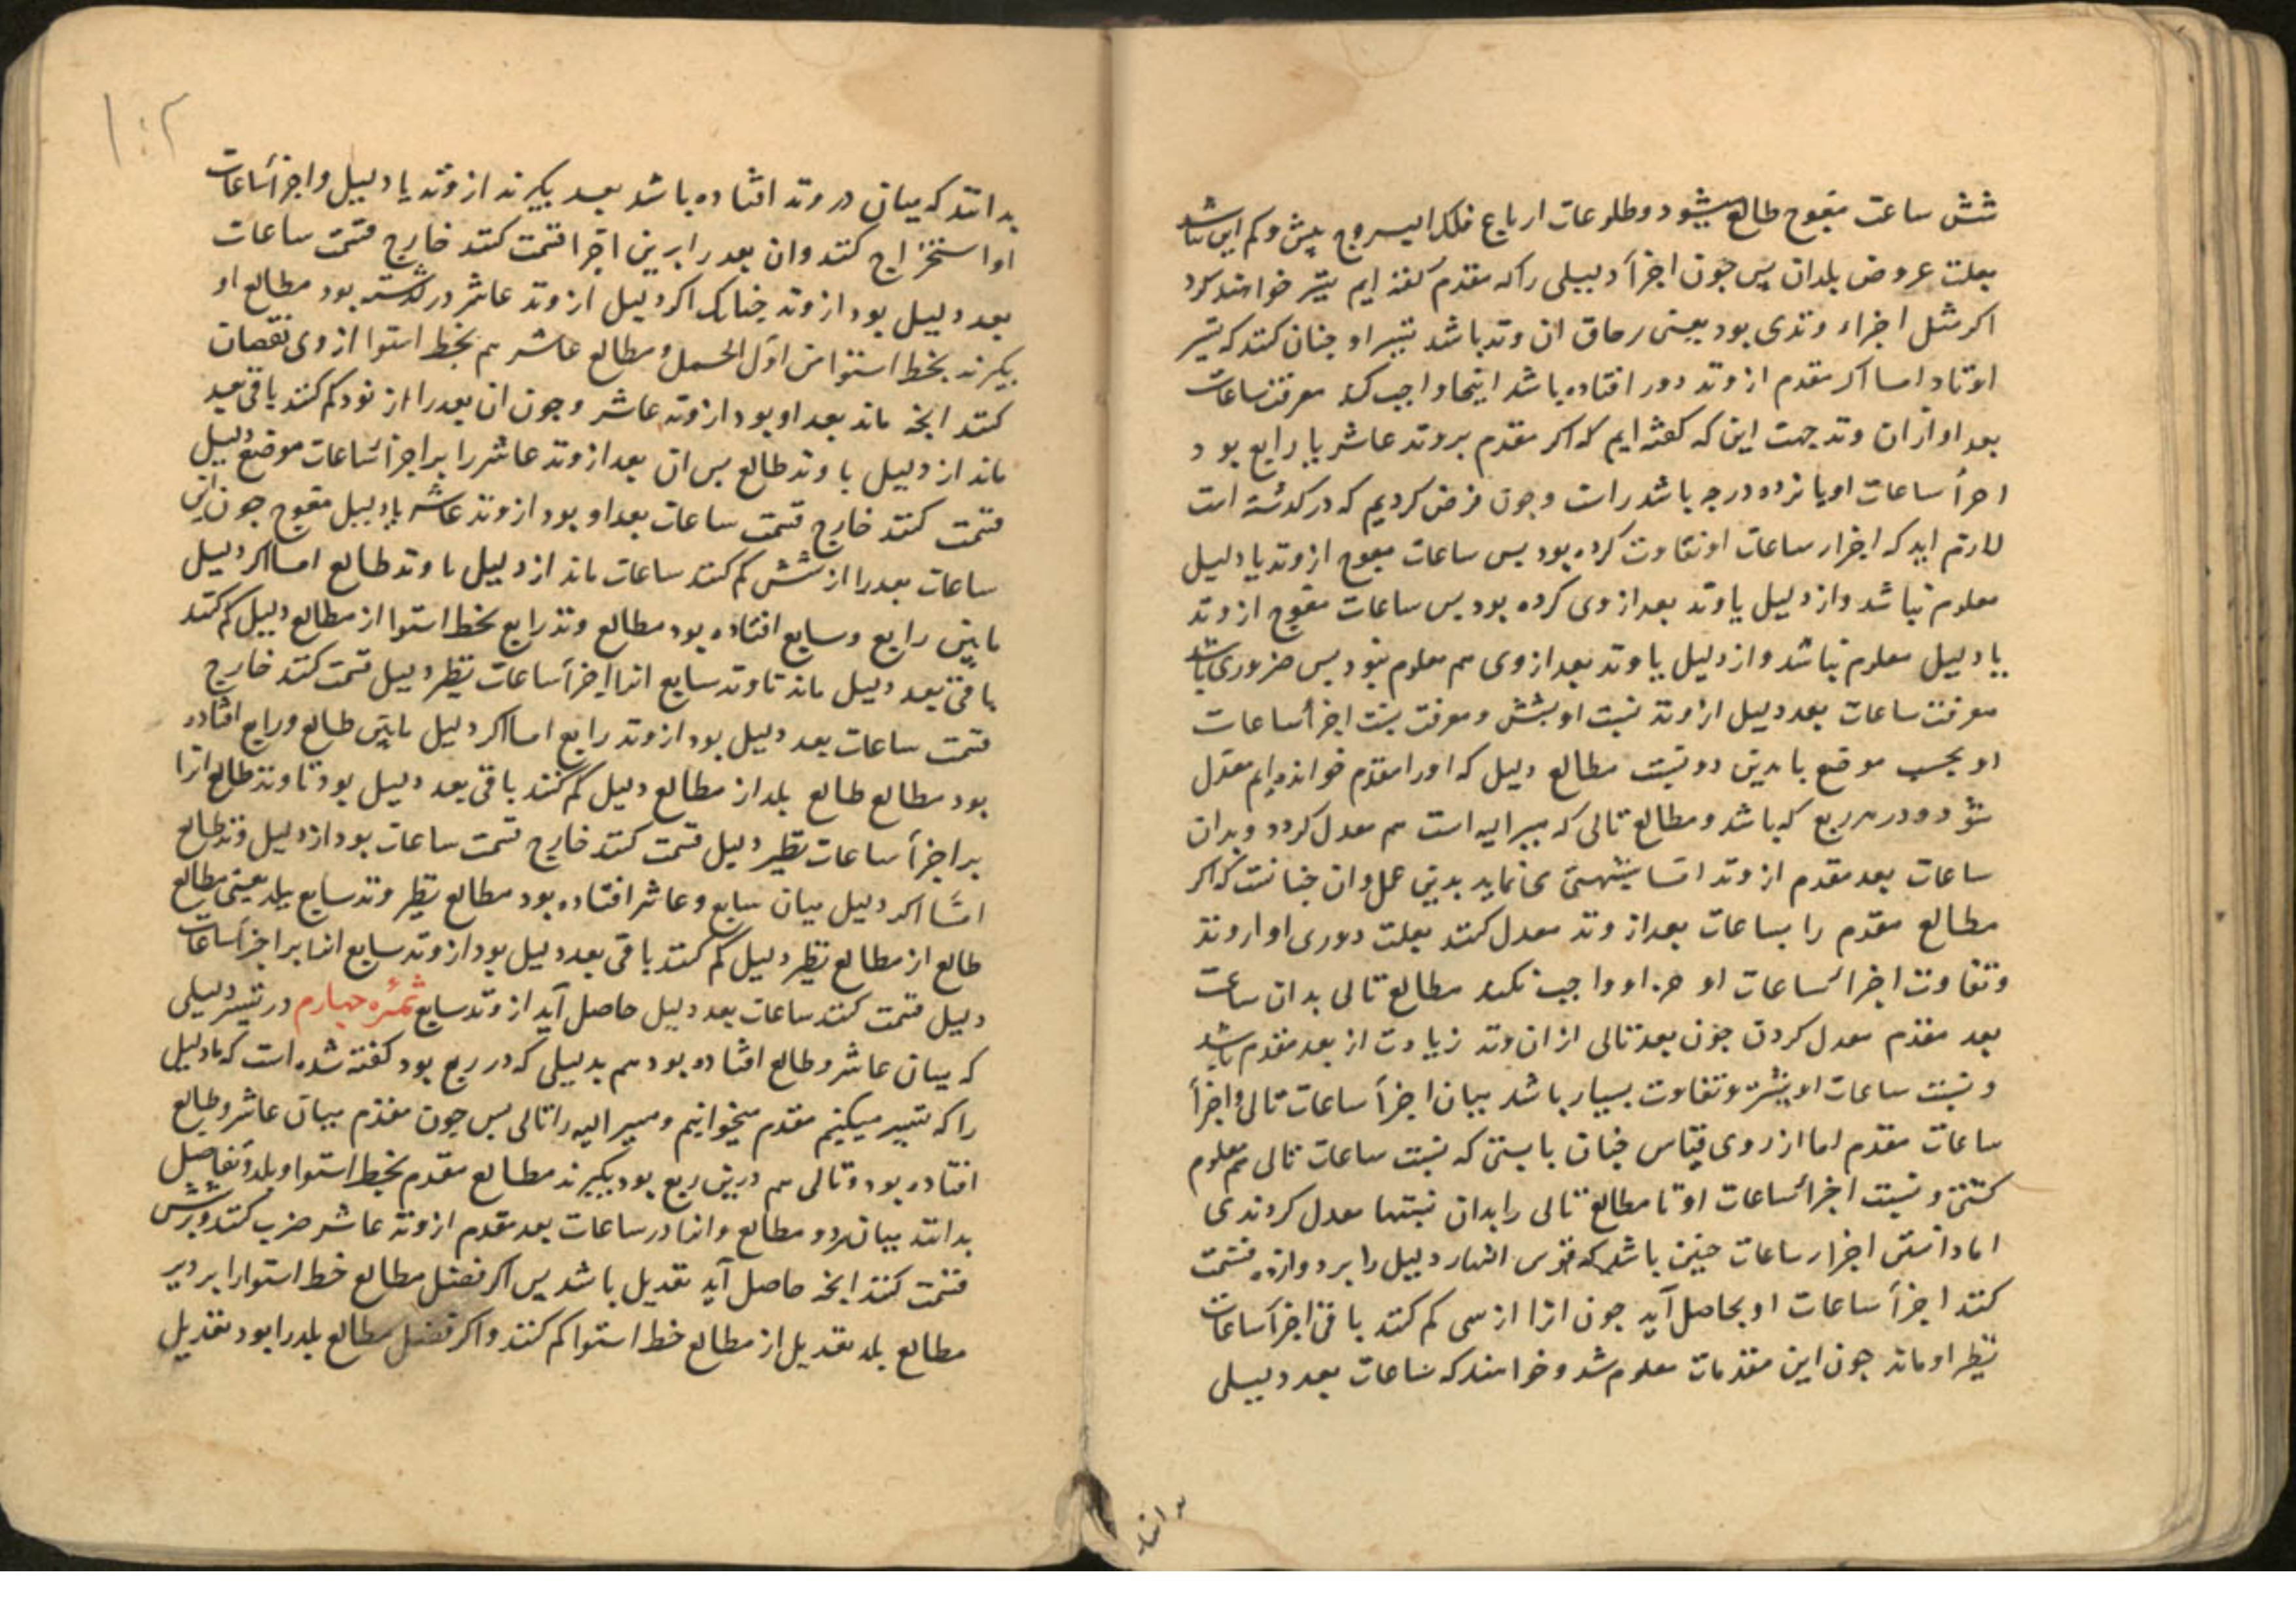 شش ساعت معوج طالع میشود و طلوعات ارباع فلک البروج بیش و کم این باشد
بعلت عروض بلدان پس جون اجزأ دلیلی را که مقدم کفته ایم تسیر خواهند کرد
اکر مثل اجزاء وتدی بود یعنی بر حاق ان وتد باشد تسیر او جنان کنند که تسیر
اوتاد اما اکر مقدم از وتد دور افتاده باشد اینجا واجب کند معرفت ساعات
بعد او ازان وتد جهت این که کفته ایم که اکر مقدم بر وتد عاشر یا رابع بود
اجزأ ساعات او پانزده درجه باشد راست و جون فرض کردیم که در کذشته است
لازم اید که اجزاء ساعات او تفاوت کرده بود پس ساعات معوج از وتد یا دلیل
معلوم نباشد و از دلیل یا وتد بعد از وی کرده بود پس ساعات معوج از وتد
یا دلیل معلوم نباشد و از دلیل یا وتد بعد از وی هم معلوم نبود پس ضروری باشد
معرفت ساعات بعد دلیل از وتد نسبت او بشش و معرفت نسبت اجزأ ساعات
او بحسب موضع تا بدین دو نسبت مطالع دلیل که او را مقدم خوانده ایم معدل
شود و در هر ربع که باشد و مطالع تالی که مسیر الیه است هم معدل کردد و بدان
ساعات بعد مقدم از وتد اما نسبتی می نماید بدین عمل وان جنانست که اکر
مطالع مقدم را بساعات بعد از وتد معدل کنند بعلت دوری او از وتد
وتفاوت اجزأ ساعات او جز او واجب نکند مطالع تالی بدان ساعت
بعد مقدم معدل کردن جون بعد تالی از ان وتد زیادت از بعد مقدم باشد
و نسبت ساعات او بیشتر و تفاوت بسیار باشد میان اجزأ ساعات تالی و اجزأ
ساعات مقدم اما از روی قیاس جنان بایستی که نسبت ساعات تالی هم معلوم
کشتی و نسبت اجزأ ساعات او تا مطالع تالی را بدان نسبتها معدل کردندی
اما دانستن اجزاء ساعات جنین باشد که قوس النهار دلیل را بر دوازده قسمت
کنند اجزأ ساعات او بحاصل آید جون انرا از سی کم کنند باقی اجزأ ساعات
نظیر او ماند جون این مقدمات معلوم شد و خواهند که ساعات بعد دلیلی
بدانند
۱۰۲
بدانند که میان دو وتد افتاده باشد بعد بکیرند از وتد یا دلیل و اجزأ ساعات
او استخراج کنند وان بعد را برین اجزا قسمت کنند خارج قسمت ساعات
بعد دلیل بود از وتد جنانک اکر دلیل از وتد عاشر در کذشته بود مطالع او
بکیرند بخط استوا من اول الحمل و مطالع عاشر هم بخط استوا از وی نقصان
کنند انچه ماند بعد او بود از وتد عاشر و جون ان بعد را از نود کم کنند باقی بعد
ماند از دلیل با وتد طالع پس ان بعد از وتد عاشر را بر اجزأ ساعات موضع دلیل
قسمت کنند خارج قسمت ساعات بعد او بود از وتد عاشر یا دلیل معوج جون این
ساعات بعد را از شش کم کنند ساعات ماند از دلیل با وتد طالع اما اکر دلیل
مابین رابع و سابع افتاده بود مطالع وتد رابع بخط استوا از مطالع دلیل کم کنند
باقی بعد دلیل ماند تا وتد سابع انرا اجزأ ساعات نظیر دلیل قسمت کنند خارج
قسمت ساعات بعد دلیل بود از وتد رابع اما اکر دلیل مابین طالع و رابع افتاده
بود مطالع طالع بلد از مطالع دلیل کم کنند باقی بعد دلیل بود تا وتد طالع انرا
بر اجزأ ساعات نظیر دلیل قسمت کنند خارج قسمت ساعات بود از دلیل وتد طالع
امّا اکر دلیل میان سابع و عاشر افتاده بود مطالع نظیر وتد سابع بلد یعنی مطالع
طالع از مطالع نظیر دلیل کم کنند باقی بعد دلیل بود از وتد سابع انرا بر اجزأ ساعات
دلیل قسمت کنند ساعات بعد دلیل حاصل آید از وتد سابع ثمره جهارم در تسیر دلیلی
که میان عاشر و طالع افتاده بود هم بدلیلی که در ربع بود کفته شده است که ما دلیل
را که تسیر میکنیم مقدم میخوانیم و مسیر الیه را تالی پس جون مقدم میان عاشر و طالع
افتاده بود و تالی هم درین ربع بود بکیرند مطالع مقدم بخط استوا و بلد و تفاضل
بدانند میان هر دو مطالع و انرا در ساعات بعد مقدم از وتد عاشر ضرب کنند و بر شش
قسمت کنند انچه حاصل آید تعدیل باشد پس اکر فضل مطالع خط استوا را بر دیر
مطالع بلد تعدیل از مطالع خط استوا کم کنند و اکر فضل مطالع بلد را بود تعدیل